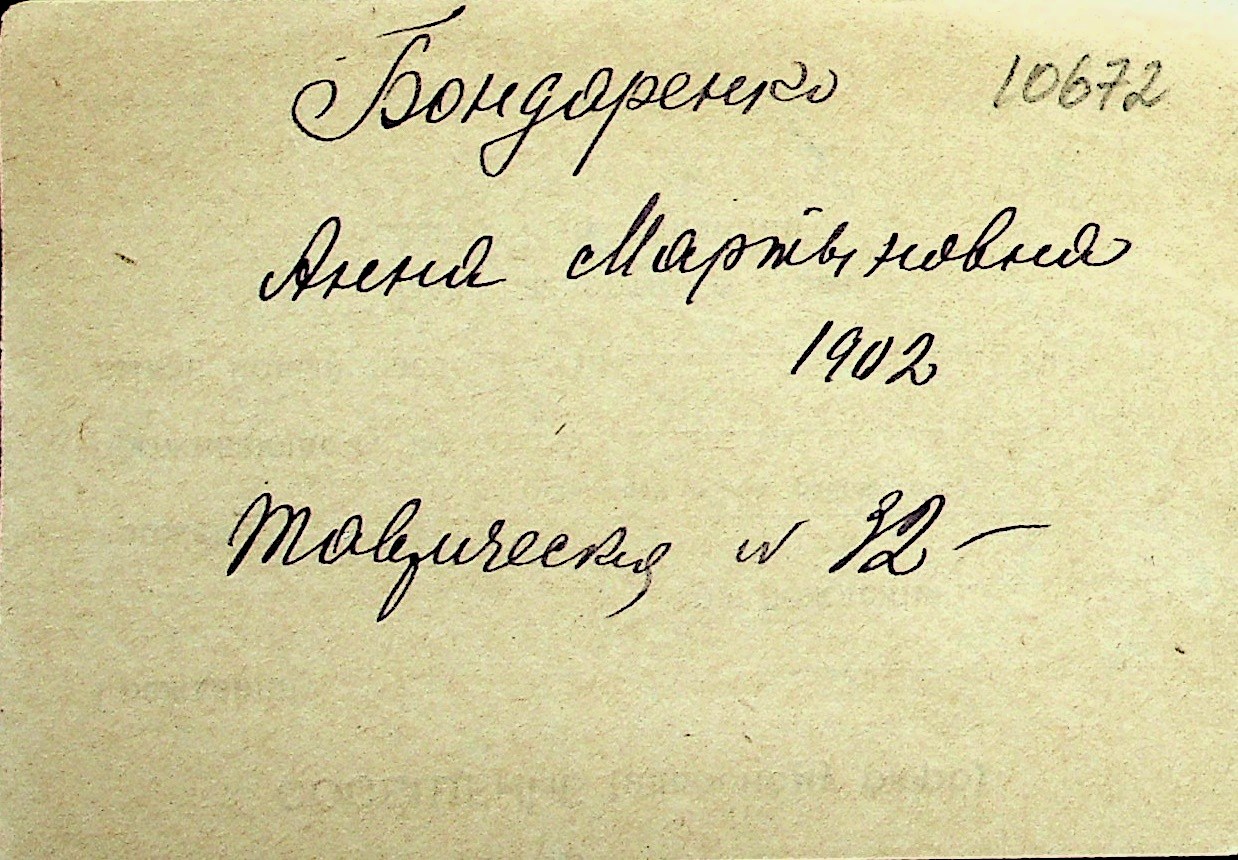 Бондаренко 10672
Анна Мартыновна
1902
Таврическая N 32 -